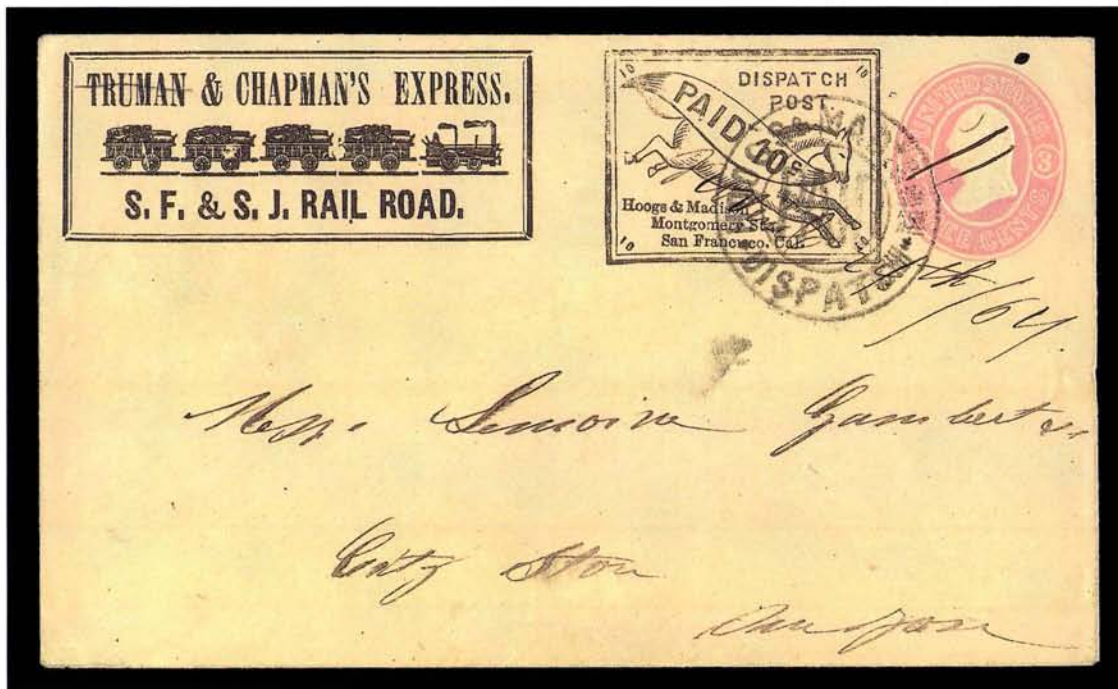 TRUMAN & CHAPMAN'S EXPRESS.
S. F. & S. J. RAIL ROAD.
10
10
DISPATCH
POST
PAID
10c
Hoogs & Madison
Montgomery Sts.
San Francisco. Cal.
10
10
DISPATCH
UNITED STATES
3
THREE CENTS
11th/64
Mess. Lemoine Gambert &
City Store
San Jose